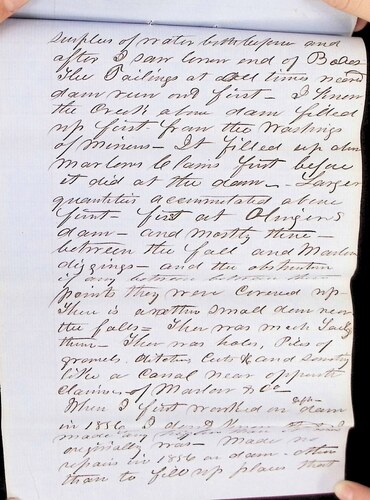 surplus of water both before and
after I saw lower end of Boxes
The Tailings at all times near
dam run out first - I know
the Creek above dam filled
up first from the washings
of miners - It filled up above
Marlows Claims first before
it did at the dam - Larger
quantities accumulated above
first - first at
dam - and mostly there -
between the fall and Marlow
diggings - and the obstruction
if any between
points they were covered up
Then is another small dam near
the falls - Ther was much
there - Ther was holes, Piles of
gravels ditches Cuts & and
like a Canal near opposite
claims of Marlow & Co
When I first worked on dam
in 1856 I
made any
originally was - Made no
repairs in 1856 on dam - other
than to fill up places that